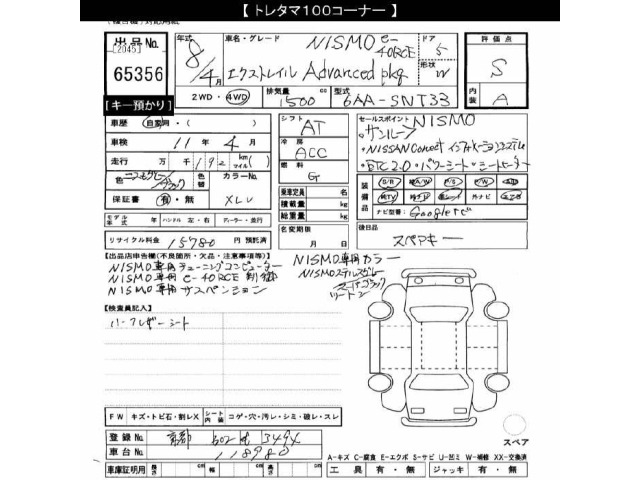 【 トレタマ100コーナー 】
出品No.
[2045]
65356
【キー預かり】
年式 8/4月
車名・グレード NISMO e-4ORCE
エクストレイル Advanced pkg
ドア 5
形状 W
2WD・4WD
排気量 1500 cc
型式 6AA-SNT33
評価点 S
内装 A
車歴 自家用・( )
車検 11年 4月
走行 万 千192 km(マイル)
色替
カラーNo. XLV
保証書 有・無
モデル年式 年 ハンドル 左・右 ディーラー・並行
リサイクル料金 15780 円 預託済
シフト AT
冷房 ACC
燃料 G
乗車定員 名
積載量 kg
総重量 kg
名変期限 月 日
セールスポイント NISMO
・サンルーフ
・NISSAN Connect インフォメーションシステム
・ETC2.0・パワーシート・シートヒーター
装備品 S/R 純A/W P/S P/W
純TV 外ナビ
ナビ型番( Googleナビ )
後日品
スペアキー
【出品店申告欄(不良箇所・欠品・注意事項等)】
NISMO専用チューニングコンピューター
NISMO専用 e-4ORCE 制御
NISMO専用 サスペンション
NISMO専用カラー
NISMOステルスグレー
スーパーブラック
ツートン
【検査員記入】
ハーフレザーシート
FW キズ・トビ石・割レX
シート内装 コゲ・穴・汚レ・シミ・破レ・スレ
登録No. 京都 302 せ 3494
車台No. 118980
車庫証明用 長さ cm 幅 cm 高さ cm
スペア
A-キズ C-腐食 E-エクボ S-サビ U-凹ミ W-補修 XX-交換済
工具 有・無 ジャッキ 有・無